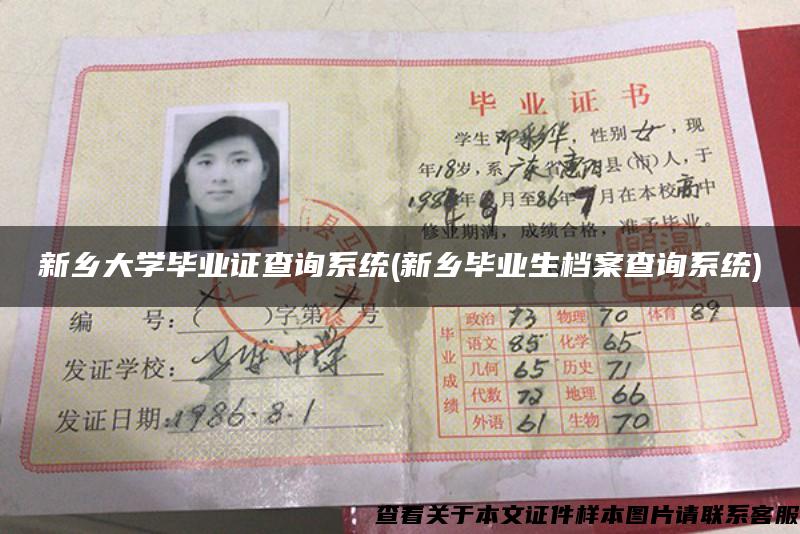 毕业证书
学生邓彩华，性别女，现
年18岁，系广东省惠阳县（市）人，于
月至86年7月在本校高中
修业期满，成绩合格，准予毕业。
新乡大学毕业证查询系统(新乡毕业生档案查询系统)
编 号：（ ）字第 号
发证学校：中学
发证日期：1986.8.1
毕业成绩
政治 73 物理 70 体育 89
语文 85 化学 65
几何 65 历史 71
代数 72 地理 66
外语 61 生物 70
查看关于本文证件样本图片请联系客服